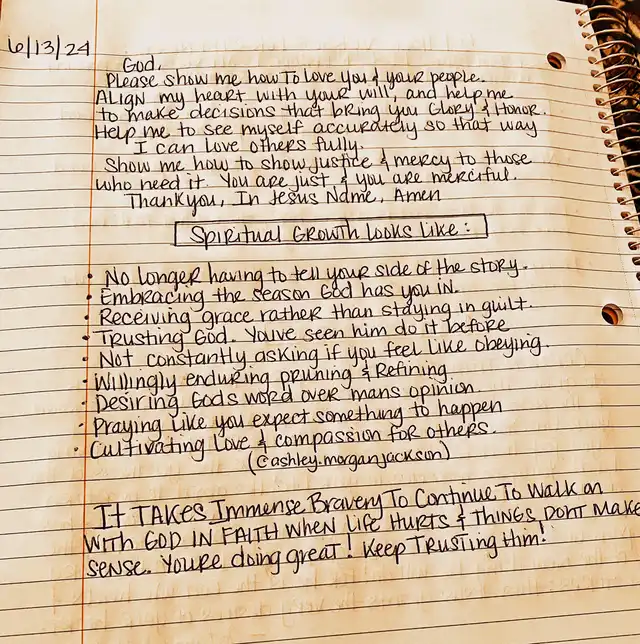 6/13/24
God,
Please show me how to love you & your people.
Align my heart with your will and help me
to make decisions that bring you Glory & Honor.
Help me to see myself accurately so that way
I can love others fully.
Show me how to show justice & mercy to those
who need it. You are just & you are merciful.
Thankyou, In Jesus Name, Amen
Spiritual Growth looks like:
• No longer having to tell your side of the story.
• Embracing the season God has you in.
• Receiving grace rather than staying in guilt.
• Trusting God. Youve seen him do it before
• Not constantly asking if you feel like obeying.
• Willingly enduring pruning & Refining.
• Desiring Gods word over mans opinion
• Praying like you expect something to happen
• Cultivating Love & compassion for others.
(@ashley.morganjackson)
It takes Immense Bravery To Continue To Walk on
with GOD IN FAITH WHEN Life HURTS & THINGS DONT MAKE
SENSE. YOURE doing great! Keep TRUSTING Him!